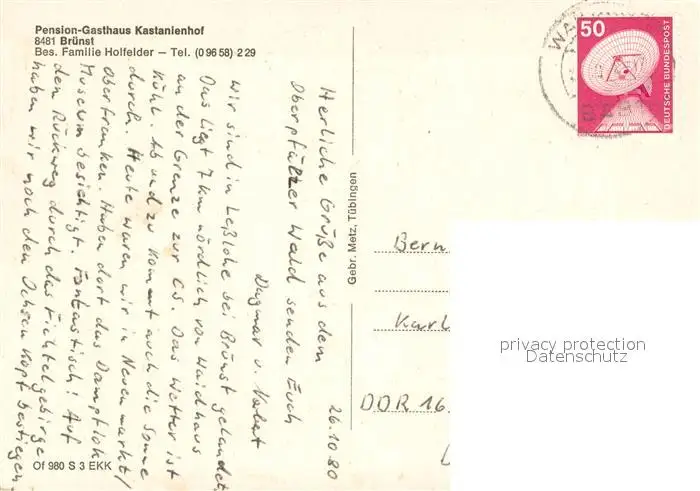 Pension-Gasthaus Kastanienhof
8481 Brünst
Bes. Familie Holfelder – Tel. (0 96 58) 2 29
26.10.80
Herrliche Grüße aus dem
Oberpfälzer Wald senden Euch
Dagmar u.
Wir sind in Leßlohe bei Brünst gelandet.
Das liegt 7 km nördlich von Waidhaus
an der Grenze zur ČS. Das Wetter ist
kühl. Ab und zu kommt auch die Sonne
durch. Heute waren wir in Neuenmarkt/
Oberfranken. Haben dort das Dampflok
Museum besichtigt. Fantastisch! Auf
den Rückweg durch das Fichtelgebirge
haben wir noch den Ochsenkopf bestiegen
Of 980 S 3 EKK
Gebr. Metz, Tübingen
50
DEUTSCHE BUNDESPOST
Bern
Karl
DDR 16
privacy protection
Datenschutz